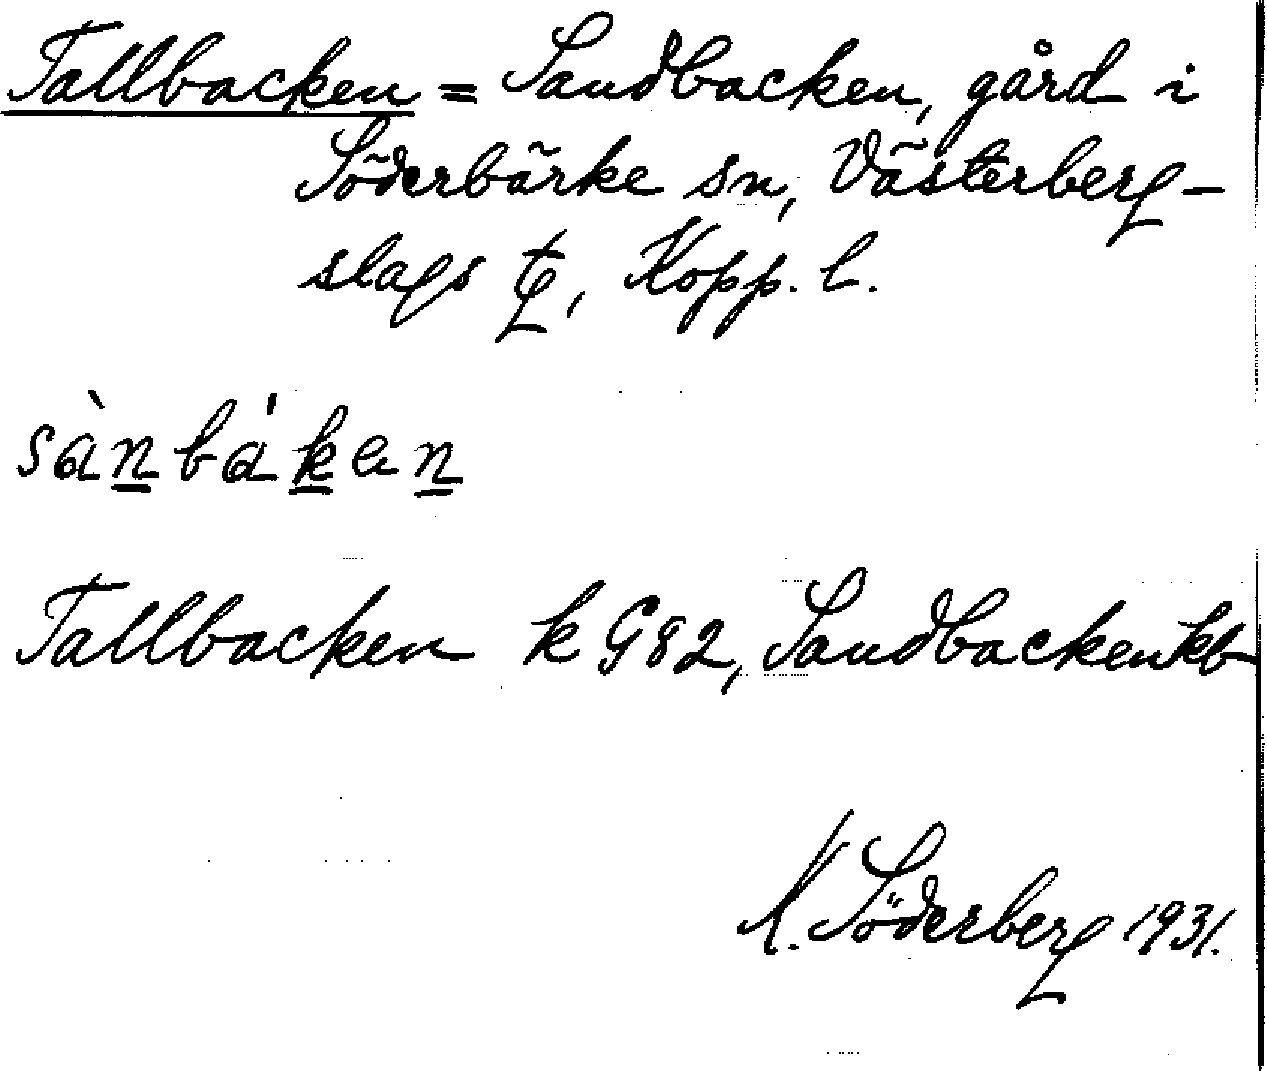 Tallbacken = Sandbacken, gård i
Söderbärke sn, Västerberg-
slags tg, Kopp. l.
sànbáken
Tallbacken k G82, Sandbacken kb
K. Söderberg 1931.